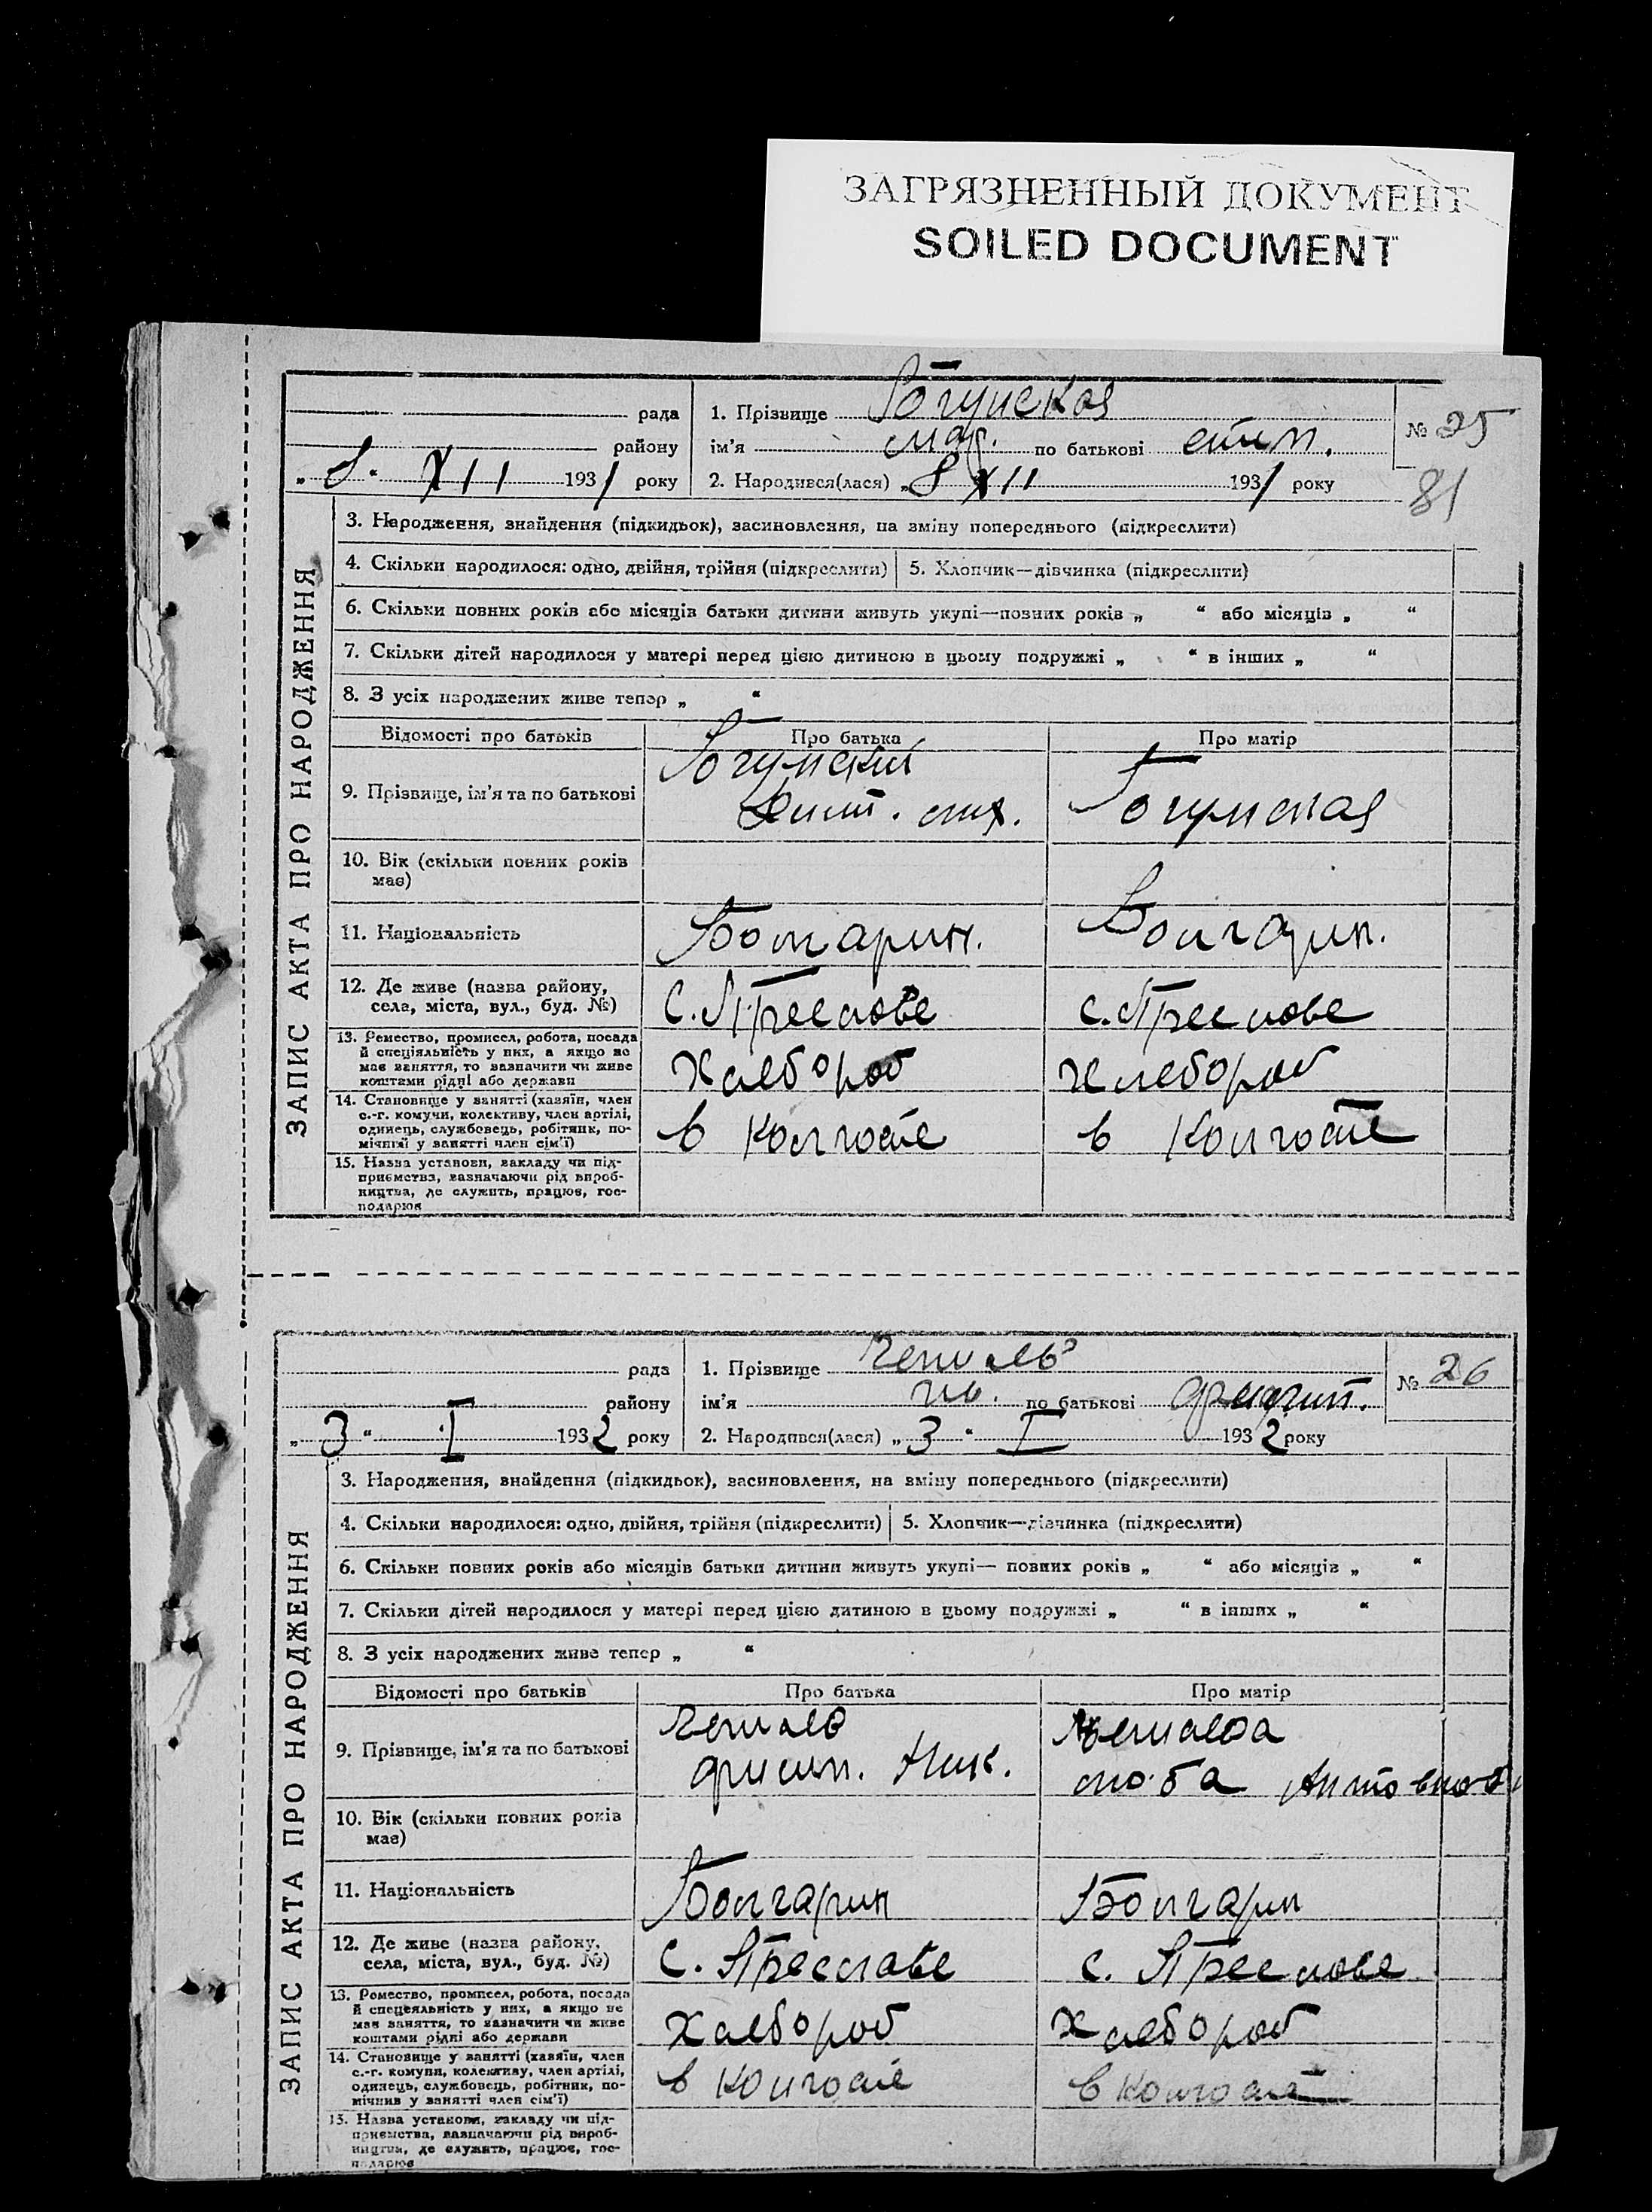 ЗАГРЯЗНЕННЫЙ ДОКУМЕНТ
SOILED DOCUMENT
рада
району
„8“ XII 1931 року
1. Прізвище
ім'я мар. по батькові
2. Народився(лася) „8 XII 1931 року
№ 25
81
ЗАПИС АКТА ПРО НАРОДЖЕННЯ
3. Народження, знайдення (підкидьок), засиновлення, на зміну попереднього (підкреслити)
4. Скільки народилося: одно, двійня, трійня (підкреслити)
5. Хлопчик—дівчинка (підкреслити)
6. Скільки повних років або місяців батьки дитини живуть укупі—повних років „ “ або місяців „ “
7. Скільки дітей народилося у матері перед цією дитиною в цьому подружжі „ “ в інших „ “
8. З усіх народжених живе тепер „ “
Відомості про батьків
Про батька
Про матір
9. Прізвище, ім'я та по батькові
10. Вік (скільки повних років
має)
11. Національність
Болгарин.
Болгарин.
12. Де живе (назва району,
села, міста, вул., буд. №)
С. Преслове
с. Преслове
13. Ремество, промисел, робота, посада
й спеціяльність у них, а якщо не
має заняття, то зазначити чи живе
коштами рідні або держави
Хлебороб
Хлебороб
14. Становище у занятті (хазяїн, член
с.-г. комуни, колективу, член артілі,
одинець, службовець, робітник, по-
мічний у занятті член сім'ї)
в колгоспе
в колгосте
15. Назва установи, закладу чи під-
приємства, зазначаючи рід вироб-
ництва, де служить, працює, гос-
подарює
рада
району
„3“ I 1932 року
1. Прізвище
ім'я по батькові
2. Народився(лася) „3“ I 1932 року
№ 26
ЗАПИС АКТА ПРО НАРОДЖЕННЯ
3. Народження, знайдення (підкидьок), засиновлення, на зміну попереднього (підкреслити)
4. Скільки народилося: одно, двійня, трійня (підкреслити)
5. Хлопчик—дівчинка (підкреслити)
6. Скільки повних років або місяців батьки дитини живуть укупі— повних років „ “ або місяців „ “
7. Скільки дітей народилося у матері перед цією дитиною в цьому подружжі „ “ в інших „ “
8. З усіх народжених живе тепер „ “
Відомості про батьків
Про батька
Про матір
9. Прізвище, ім'я та по батькові
Ник.
10. Вік (скільки повних років
має)
11. Національність
Болгарин
Болгарин
12. Де живе (назва району,
села, міста, вул., буд. №)
С. Преславе
с. Преслове
13. Ромество, промисел, робота, посада
й спецеяльність у них, а якщо не
має заняття, то зазначити чи живе
коштами рідні або держави
Хлебороб
Хлебороб
14. Становище у занятті (хазяїн, член
с.-г. комуни, колективу, член артілі,
одинець, службовець, робітник, по-
мічний у занятті член сім'ї)
в колгосте
в колгосте
15. Назва установи, закладу чи під-
приємства, зазначаючи рід вироб-
ництва, де служить, працює, гос-
подарює